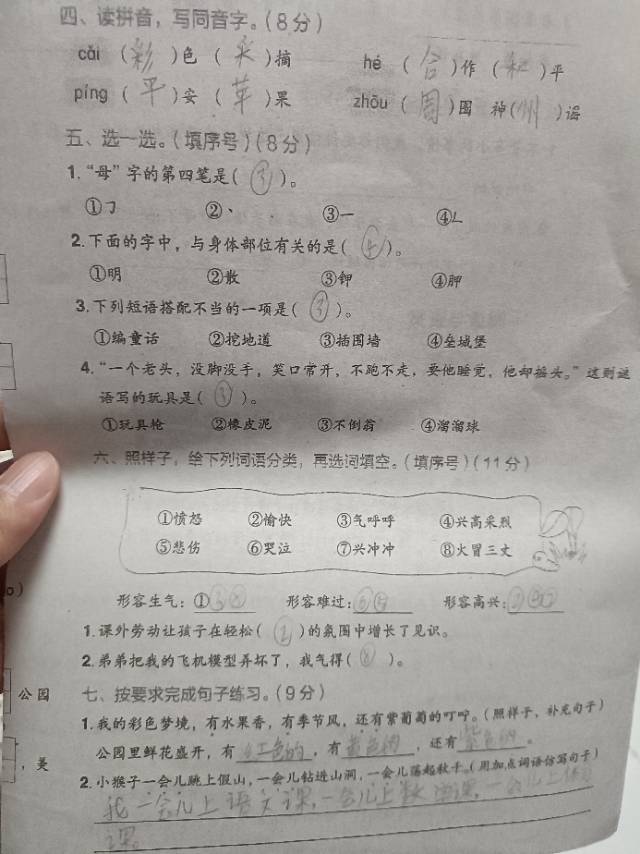 四、读拼音，写同音字。（8分）
cǎi （彩）色 （采）摘 hé （合）作 （和）平
píng （平）安 （苹）果 zhōu （周）围 神（州）谣
五、选一选。（填序号）（8分）
1.“母”字的第四笔是（③）。
①㇆ ②丶 ③一 ④ㄥ
2.下面的字中，与身体部位有关的是（④）。
①明 ②散 ③钾 ④胛
3.下列短语搭配不当的一项是（③）。
①编童话 ②挖地道 ③插围墙 ④垒城堡
4.“一个老头，没脚没手，笑口常开，不跑不走，要他睡觉，他却摇头。”这则谜
语写的玩具是（③）。
①玩具枪 ②橡皮泥 ③不倒翁 ④溜溜球
六、照样子，给下列词语分类，再选词填空。（填序号）（11分）
①愤怒 ②愉快 ③气呼呼 ④兴高采烈
⑤悲伤 ⑥哭泣 ⑦兴冲冲 ⑧火冒三丈
形容生气：①③⑧ 形容难过：⑥⑤ 形容高兴：②④⑦
1.课外劳动让孩子在轻松（②）的氛围中增长了见识。
2.弟弟把我的飞机模型弄坏了，我气得（⑧）。
公园 七、按要求完成句子练习。（9分）
1.我的彩色梦境，有水果香，有季节风，还有紫葡萄的叮咛。（照样子，补充句子）
，美 公园里鲜花盛开，有红色的，有黄色的，还有紫色的。
2.小猴子一会儿跳上假山，一会儿钻进山洞，一会儿荡起秋千。（用加点词语仿写句子）
我一会儿上语文课，一会儿上数 课，一会儿上体育
课。